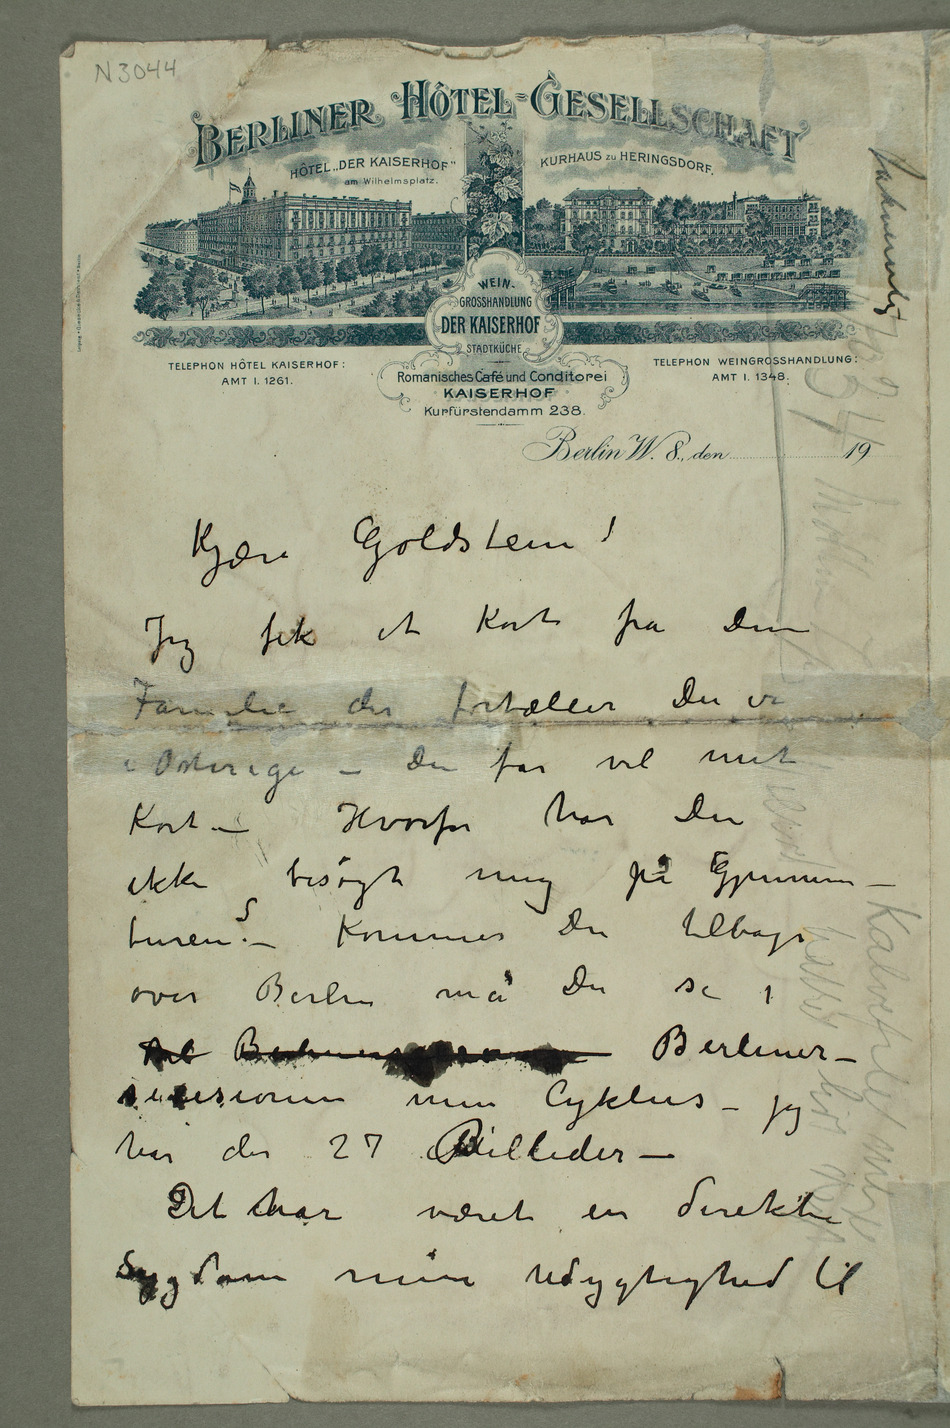 N 3044
BERLINER HÔTEL-GESELLSCHAFT
HÔTEL „DER KAISERHOF"
am Wilhelmsplatz.
KURHAUS zu HERINGSDORF.
WEIN-
GROSSHANDLUNG
DER KAISERHOF
STADTKÜCHE
TELEPHON HÔTEL KAISERHOF:
AMT I. 1261.
TELEPHON WEINGROSSHANDLUNG:
AMT I. 1348.
Romanisches Café und Conditorei
KAISERHOF
Kurfürstendamm 238.
Berlin W. 8., den 19
Kjære Goldstein!
Jeg fik et Kort fra din
Familie der fortæller Du er
i Østerige – Du får vel mit
Kort – Hvorfor har Du
ikke besøgt mig på Gjennem–
turen? – Kommer Du tilbage
over Berlin må Du se i
Berliner–
secesionen min Cyklus – jeg
har der 27 Billeder –
Det har været en direkte
Sygdom min Udygtighed til